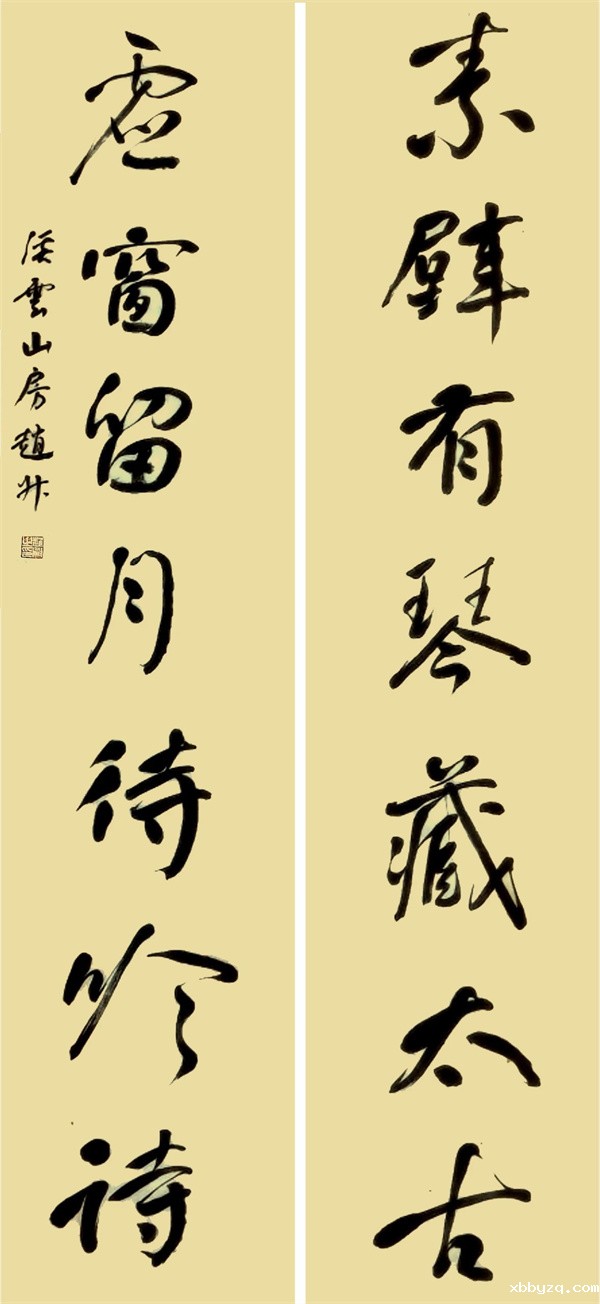 素壁有琴藏太古
虛窗留月待吟詩
溪雲山房趙升
xbbyzq.com